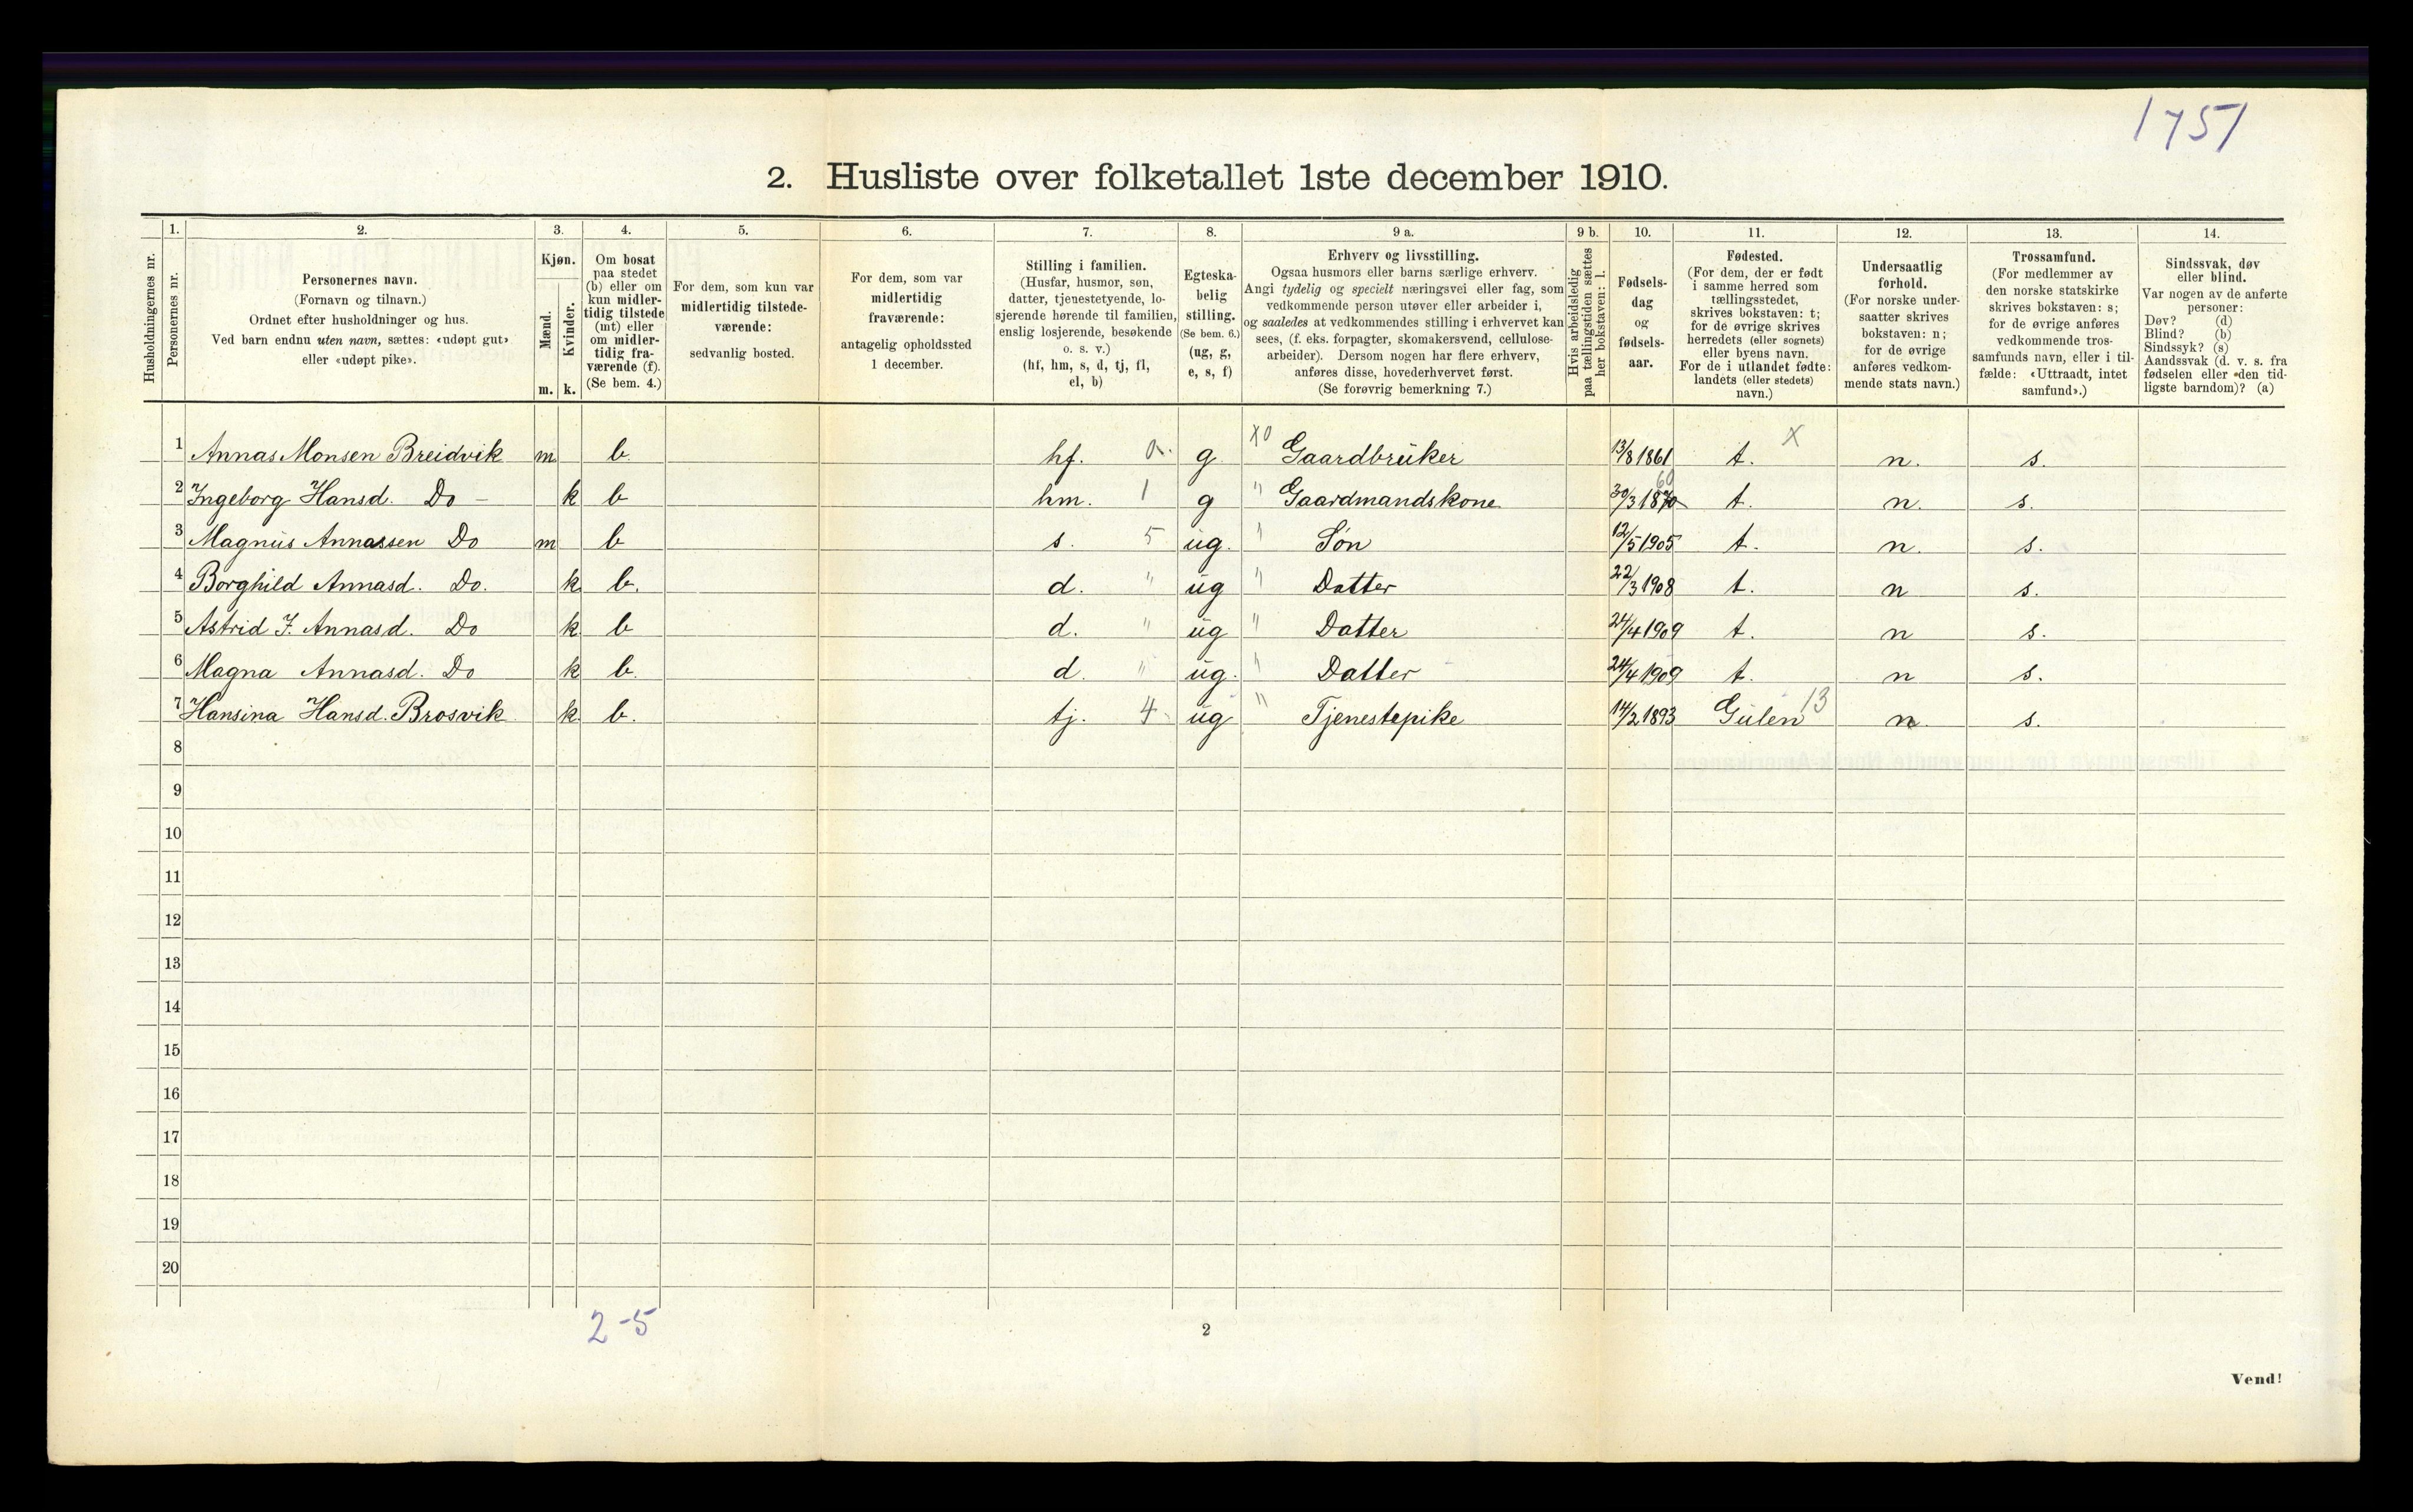 1751
2. Husliste over folketallet 1ste december 1910.
Husholdningernes nr.
1. Personernes nr.
2. Personernes navn.
(Fornavn og tilnavn.)
Ordnet efter husholdninger og hus.
Ved barn endnu uten navn, sættes: «udøpt gut»
eller «udøpt pike».
3. Kjøn.
Mænd. m.
Kvinder. k.
4. Om bosat
paa stedet
(b) eller om
kun midler-
tidig tilstede
(mt) eller
om midler-
tidig fra-
værende (f).
(Se bem. 4.)
5. For dem, som kun var
midlertidig tilstede-
værende:
sedvanlig bosted.
6. For dem, som var
midlertidig
fraværende:
antagelig opholdssted
1 december.
7. Stilling i familien.
(Husfar, husmor, søn,
datter, tjenestetyende, lo-
sjerende hørende til familien,
enslig losjerende, besøkende
o. s. v.)
(hf, hm, s, d, tj, fl,
el, b)
8. Egteska-
belig
stilling.
(Se bem. 6.)
(ug, g,
e, s, f)
9 a. Erhverv og livsstilling.
Ogsaa husmors eller barns særlige erhverv.
Angi tydelig og specielt næringsvei eller fag, som
vedkommende person utøver eller arbeider i,
og saaledes at vedkommendes stilling i erhvervet kan
sees, (f. eks. forpagter, skomakersvend, cellulose-
arbeider). Dersom nogen har flere erhverv,
anføres disse, hovederhvervet først.
(Se forøvrig bemerkning 7.)
9 b. Hvis arbeidsledig
paa tællingstiden sættes
her bokstaven: l.
10. Fødsels-
dag
og
fødsels-
aar.
11. Fødested.
(For dem, der er født
i samme herred som
tællingsstedet,
skrives bokstaven: t;
for de øvrige skrives
herredets (eller sognets)
eller byens navn.
For de i utlandet fødte:
landets (eller stedets)
navn.)
12. Undersaatlig
forhold.
(For norske under-
saatter skrives
bokstaven: n;
for de øvrige
anføres vedkom-
mende stats navn.)
13. Trossamfund.
(For medlemmer av
den norske statskirke
skrives bokstaven: s;
for de øvrige anføres
vedkommende tros-
samfunds navn, eller i til-
fælde: «Uttraadt, intet
samfund».)
14. Sindssvak, døv
eller blind.
Var nogen av de anførte
personer:
Døv? (d)
Blind? (b)
Sindssyk? (s)
Aandssvak (d. v. s. fra
fødselen eller den tid-
ligste barndom)? (a)
1 Annas Monsen Breidvik m b hf. g X0 Gaardbruker 13/8 1861 t. X n. s.
2 Ingeborg Hansd. Do - k b hm. 1 g " Gaardmandskone 30/3 1870 60 t. n. s.
3 Magnus Annassen Do m b s. 5 ug. " Søn 12/5 1905 t. n. s.
4 Borghild Annasd. Do. k b. d. " ug " Datter 22/3 1908 t. n s.
5 Astrid J. Annasd. Do k b d. " ug " Datter 24/4 1909 t. n s.
6 Magna Annasd. Do k b. d " ug. " Datter 24/4 1909 t. n s.
7 Hansina Hansd. Brosvik k. b. tj. 4 ug " Tjenestepike 14/2 1893 Gulen 13 n s.
8
9
10
11
12
13
14
15
16
17
18
19
20
2-5
2
Vend!